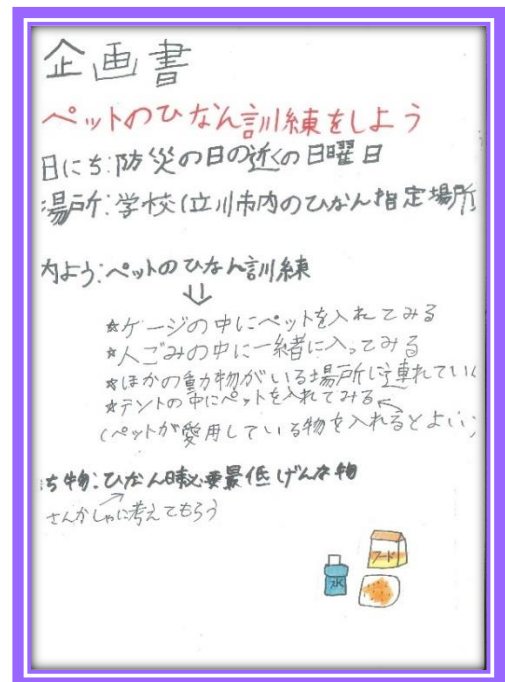 企画書
ペットのひなん訓練をしよう
日にち:防災の日の近くの日曜日
場所:学校(立川市内のひなん指定場所
内よう:ペットのひなん訓練
☆ケージの中にペットを入れてみる
☆人ごみの中に一緒に入ってみる
☆ほかの動物がいる場所に連れていく
☆テントの中にペットを入れてみる
(ペットが愛用している物を入れるとよい)
ち物:ひなん時必要最低げんな物
さんかしゃに考えてもらう
フード
水